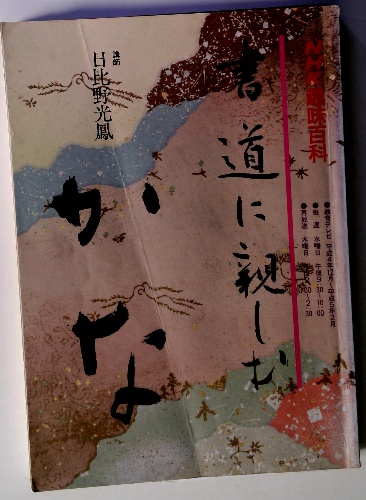 NHK趣味百科
書道に親しむ
かな
講師
日比野光鳳
●教育テレビ 平成4年12月~平成5年2月
●毎週 水曜日 午後9:30~10:00
●再放送 木曜日